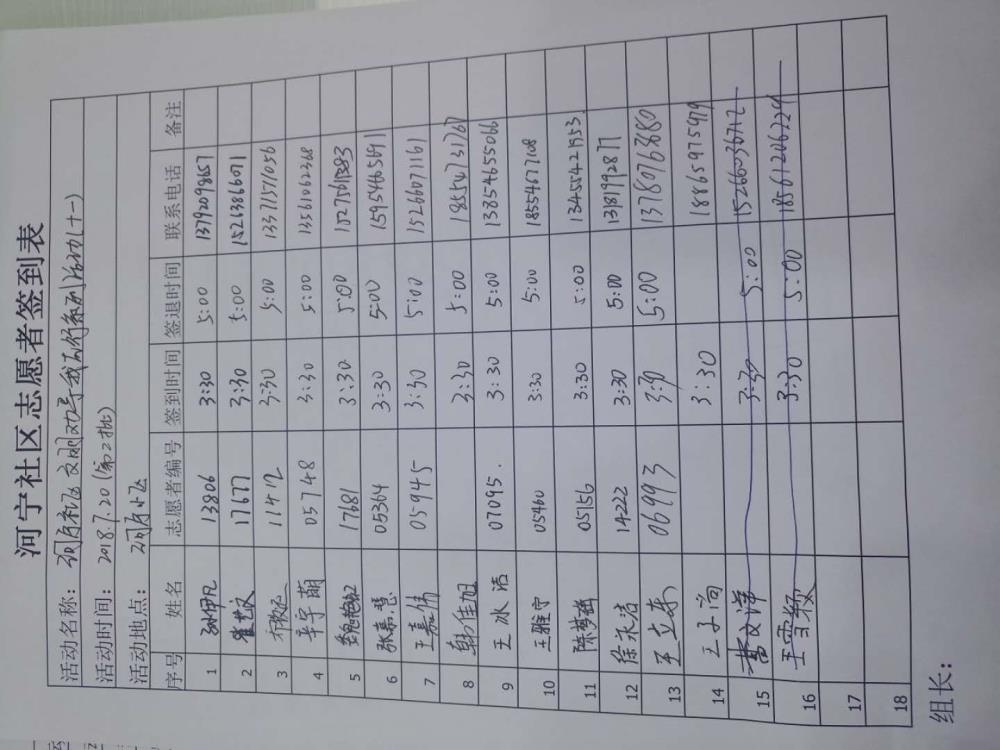 河宁社区志愿者签到表
活动名称：
活动时间：2018.7.20(第2批)
活动地点：
序号 姓名 志愿者编号 签到时间 签退时间 联系电话 备注
1 13806 3:30 5:00
2 17677 3:30 5:00 15263866071
3 11412 3:30 5:00 13371571056
4 辛宇萌 05748 3:30 5:00 13561062268
5 17681 3:30 5:00
6 张嘉慧 05364 3:30 5:00 15954465691
7 王嘉伟 05945 3:30 5:00 15266071161
8 韩佳旭 3:30 5:00 18554731767
9 王冰洁 07095. 3:30 5:00 13854655066
10 王雅宁 05460 3:30 5:00 18554677108
11 陈梦 05156 3:30 5:00 13455421953
12 徐永洁 14222 3:30 5:00 13181992877
13 王立东 06993 3:30 5:00 13780768680
14 王子尚 3:30 18865975979
15 3:30 5:00 15266036712
16 王雪颖 3:30 5:00 18561206224
17
18
组长：